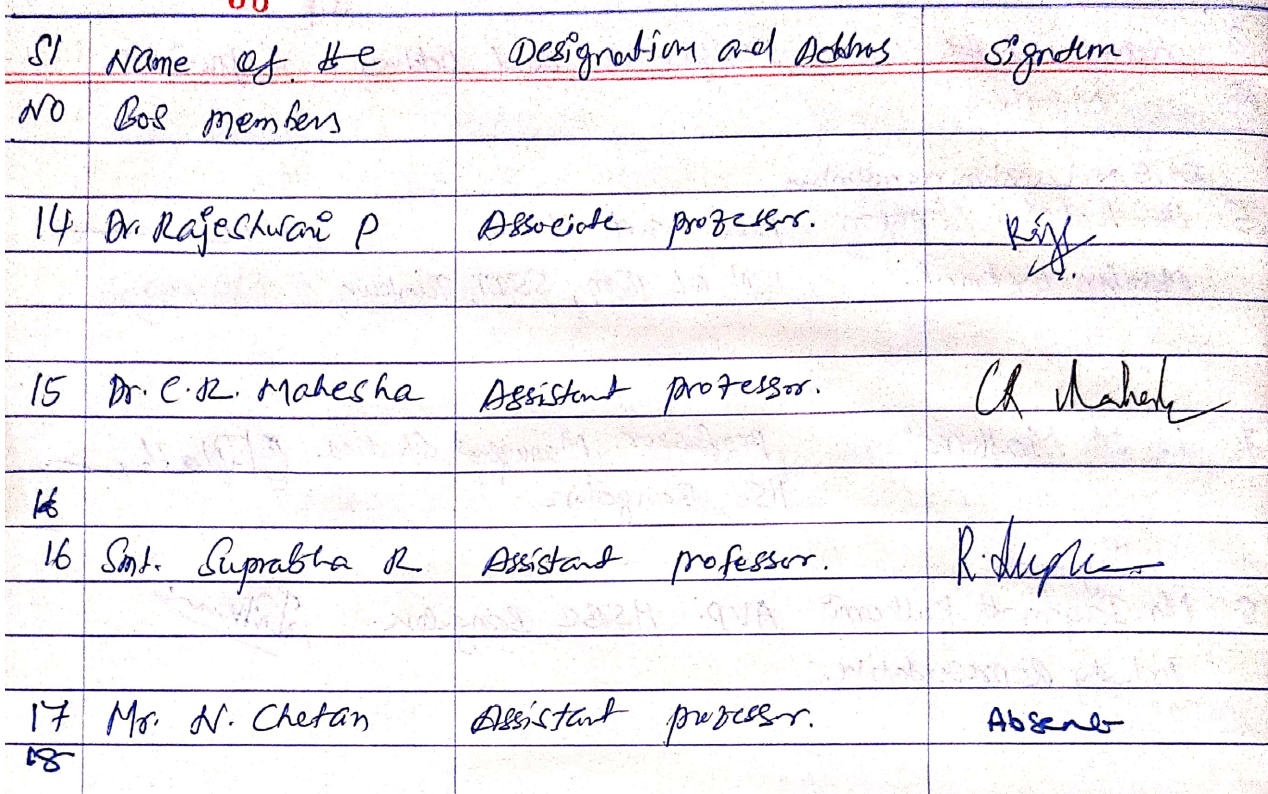 Sl Name of the Designation and Address Signature
No BoS members
14 Dr. Rajeshwari P Associate professor.
15 Dr. C.R. Mahesha Assistant professor. CR Mahesh
16
16 Smt. Suprabha R Assistant professor.
17 Mr. N. Chetan Assistant professor. Absent
18